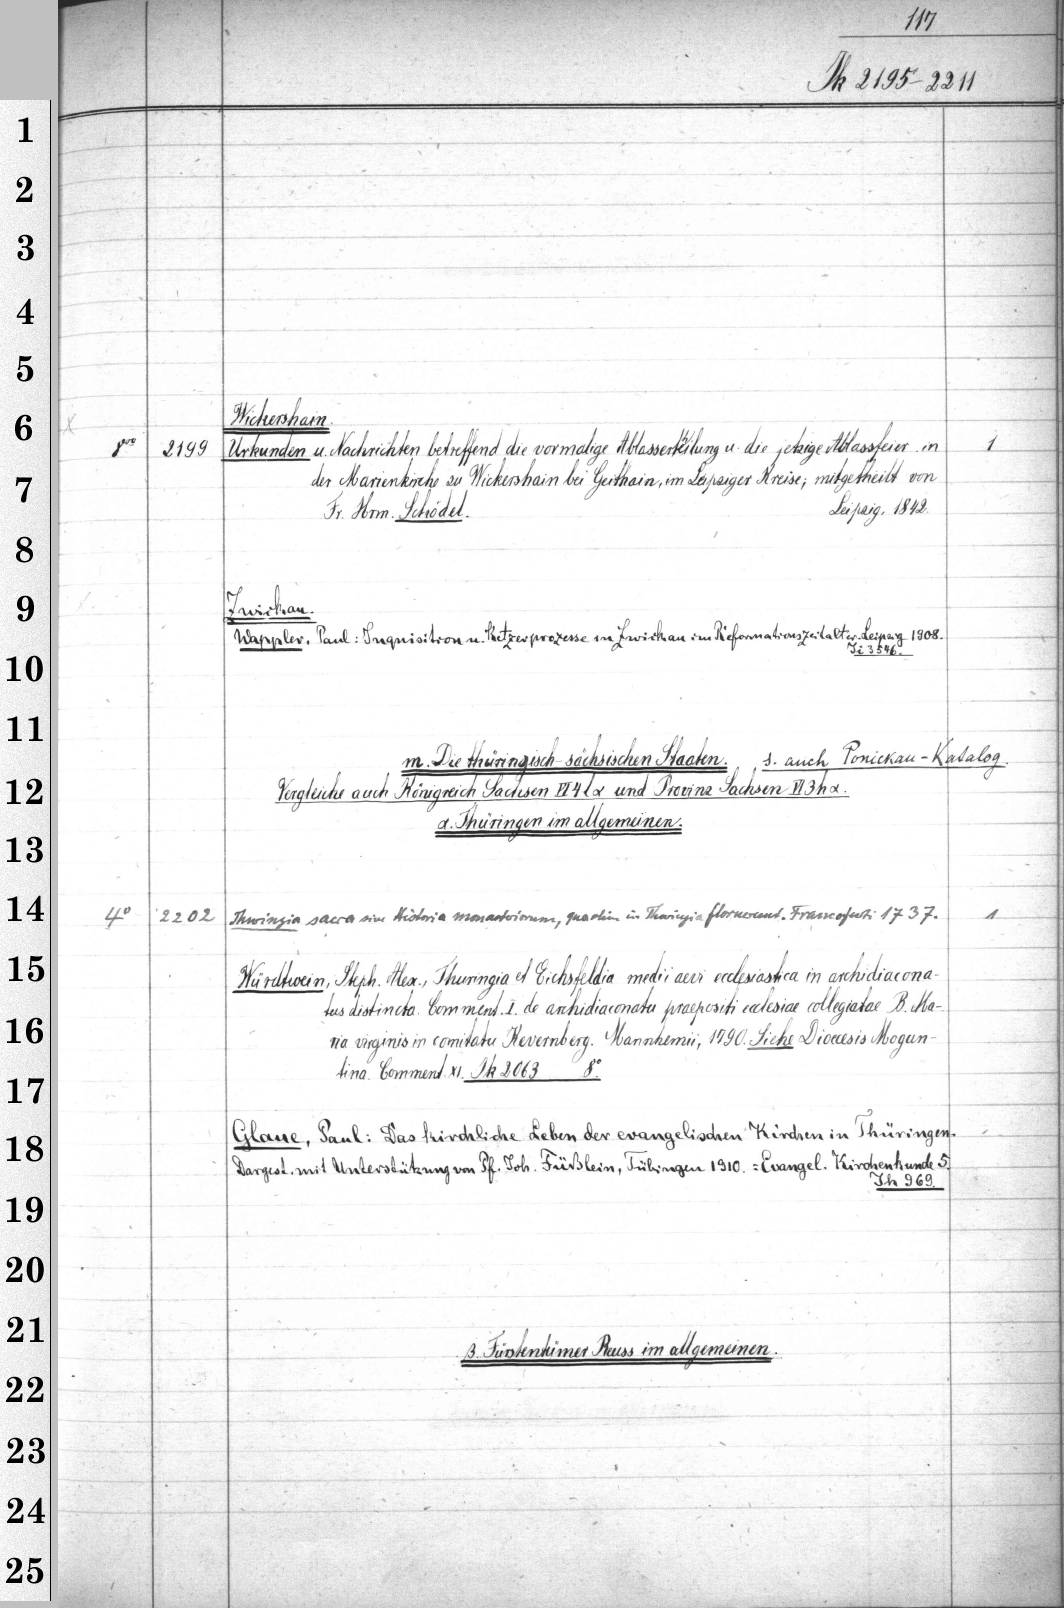 117
Jk 2195-2211
1
2
3
4
5
6
7
8
9
10
11
12
13
14
15
16
17
18
19
20
21
22
23
24
25
Wickershain.
8vo 2199 Urkunden u. Nachrichten betreffend die vormalige Ablasserteilung u. die jetzige Ablassfeier in 1
der Marienkirche zu Wickershain bei Geithain, im Leipziger Kreise; mitgetheilt von
Fr. Hrm. Schödel. Leipzig, 1842.
Zwickau.
Wappler, Paul: Inquisition u. Ketzerprozesse in Zwickau im Reformationszeitalter. Leipzig 1908.
Ji 3546.
m. Die thüringisch-sächsischen Staaten. s. auch Ponickau-Katalog.
Vergleiche auch Königreich Sachsen VI 4 l α und Provinz Sachsen VI 3 h α.
α. Thüringen im allgemeinen.
4° 2202 Thuringia sacra sive Historia monasteriorum, quae olim in Thuringia floruerunt. Francofurti 1737. 1
Würdtwein, Steph. Alex., Thuringia et Eichsfeldia medii aevi ecclesiastica in archidiacona-
tus distincta. Comment. I. de archidiaconatu praepositi ecclesiae collegiatae B. Ma-
ria virginis in comitatu Kevernberg. Mannhemii, 1790. Siehe Dioecesis Mogun-
tina. Comment. XI. Jk 2063 8°.
Glaue, Paul: Das kirchliche Leben der evangelischen Kirchen in Thüringen.
Dargest. mit Unterstützung von Pf. Joh. Füßlein, Tübingen 1910. = Evangel. Kirchenkunde 5.
Jh 969.
β. Fürstentümer Reuss im allgemeinen.